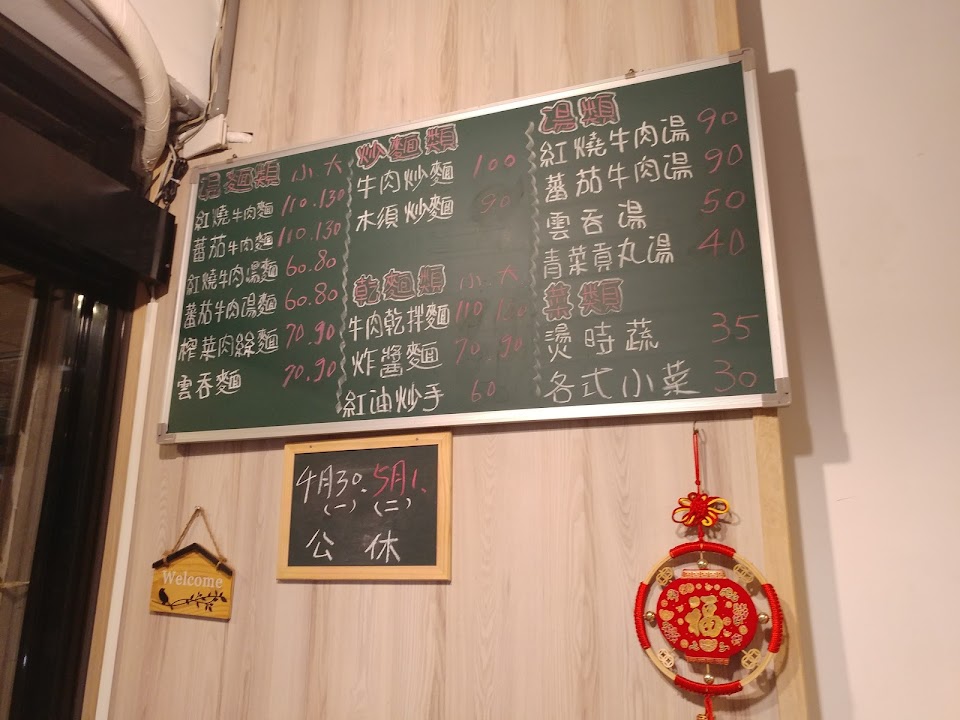 湯麵類 小 大
紅燒牛肉麵 110.130
蕃茄牛肉麵 110.130
紅燒牛肉湯麵 60.80
蕃茄牛肉湯麵 60.80
榨菜肉絲麵 70.90
雲吞麵 70.90
炒麵類
牛肉炒麵 100
木須炒麵 90
乾麵類 小.大
牛肉乾拌麵 110
炸醬麵 70.90
紅油炒手 60
湯類
紅燒牛肉湯 90
蕃茄牛肉湯 90
雲吞湯 50
青菜貢丸湯 40
菜類
燙時蔬 35
各式小菜 30
4月30.5月1.
(一) (二)
公休
Welcome
福